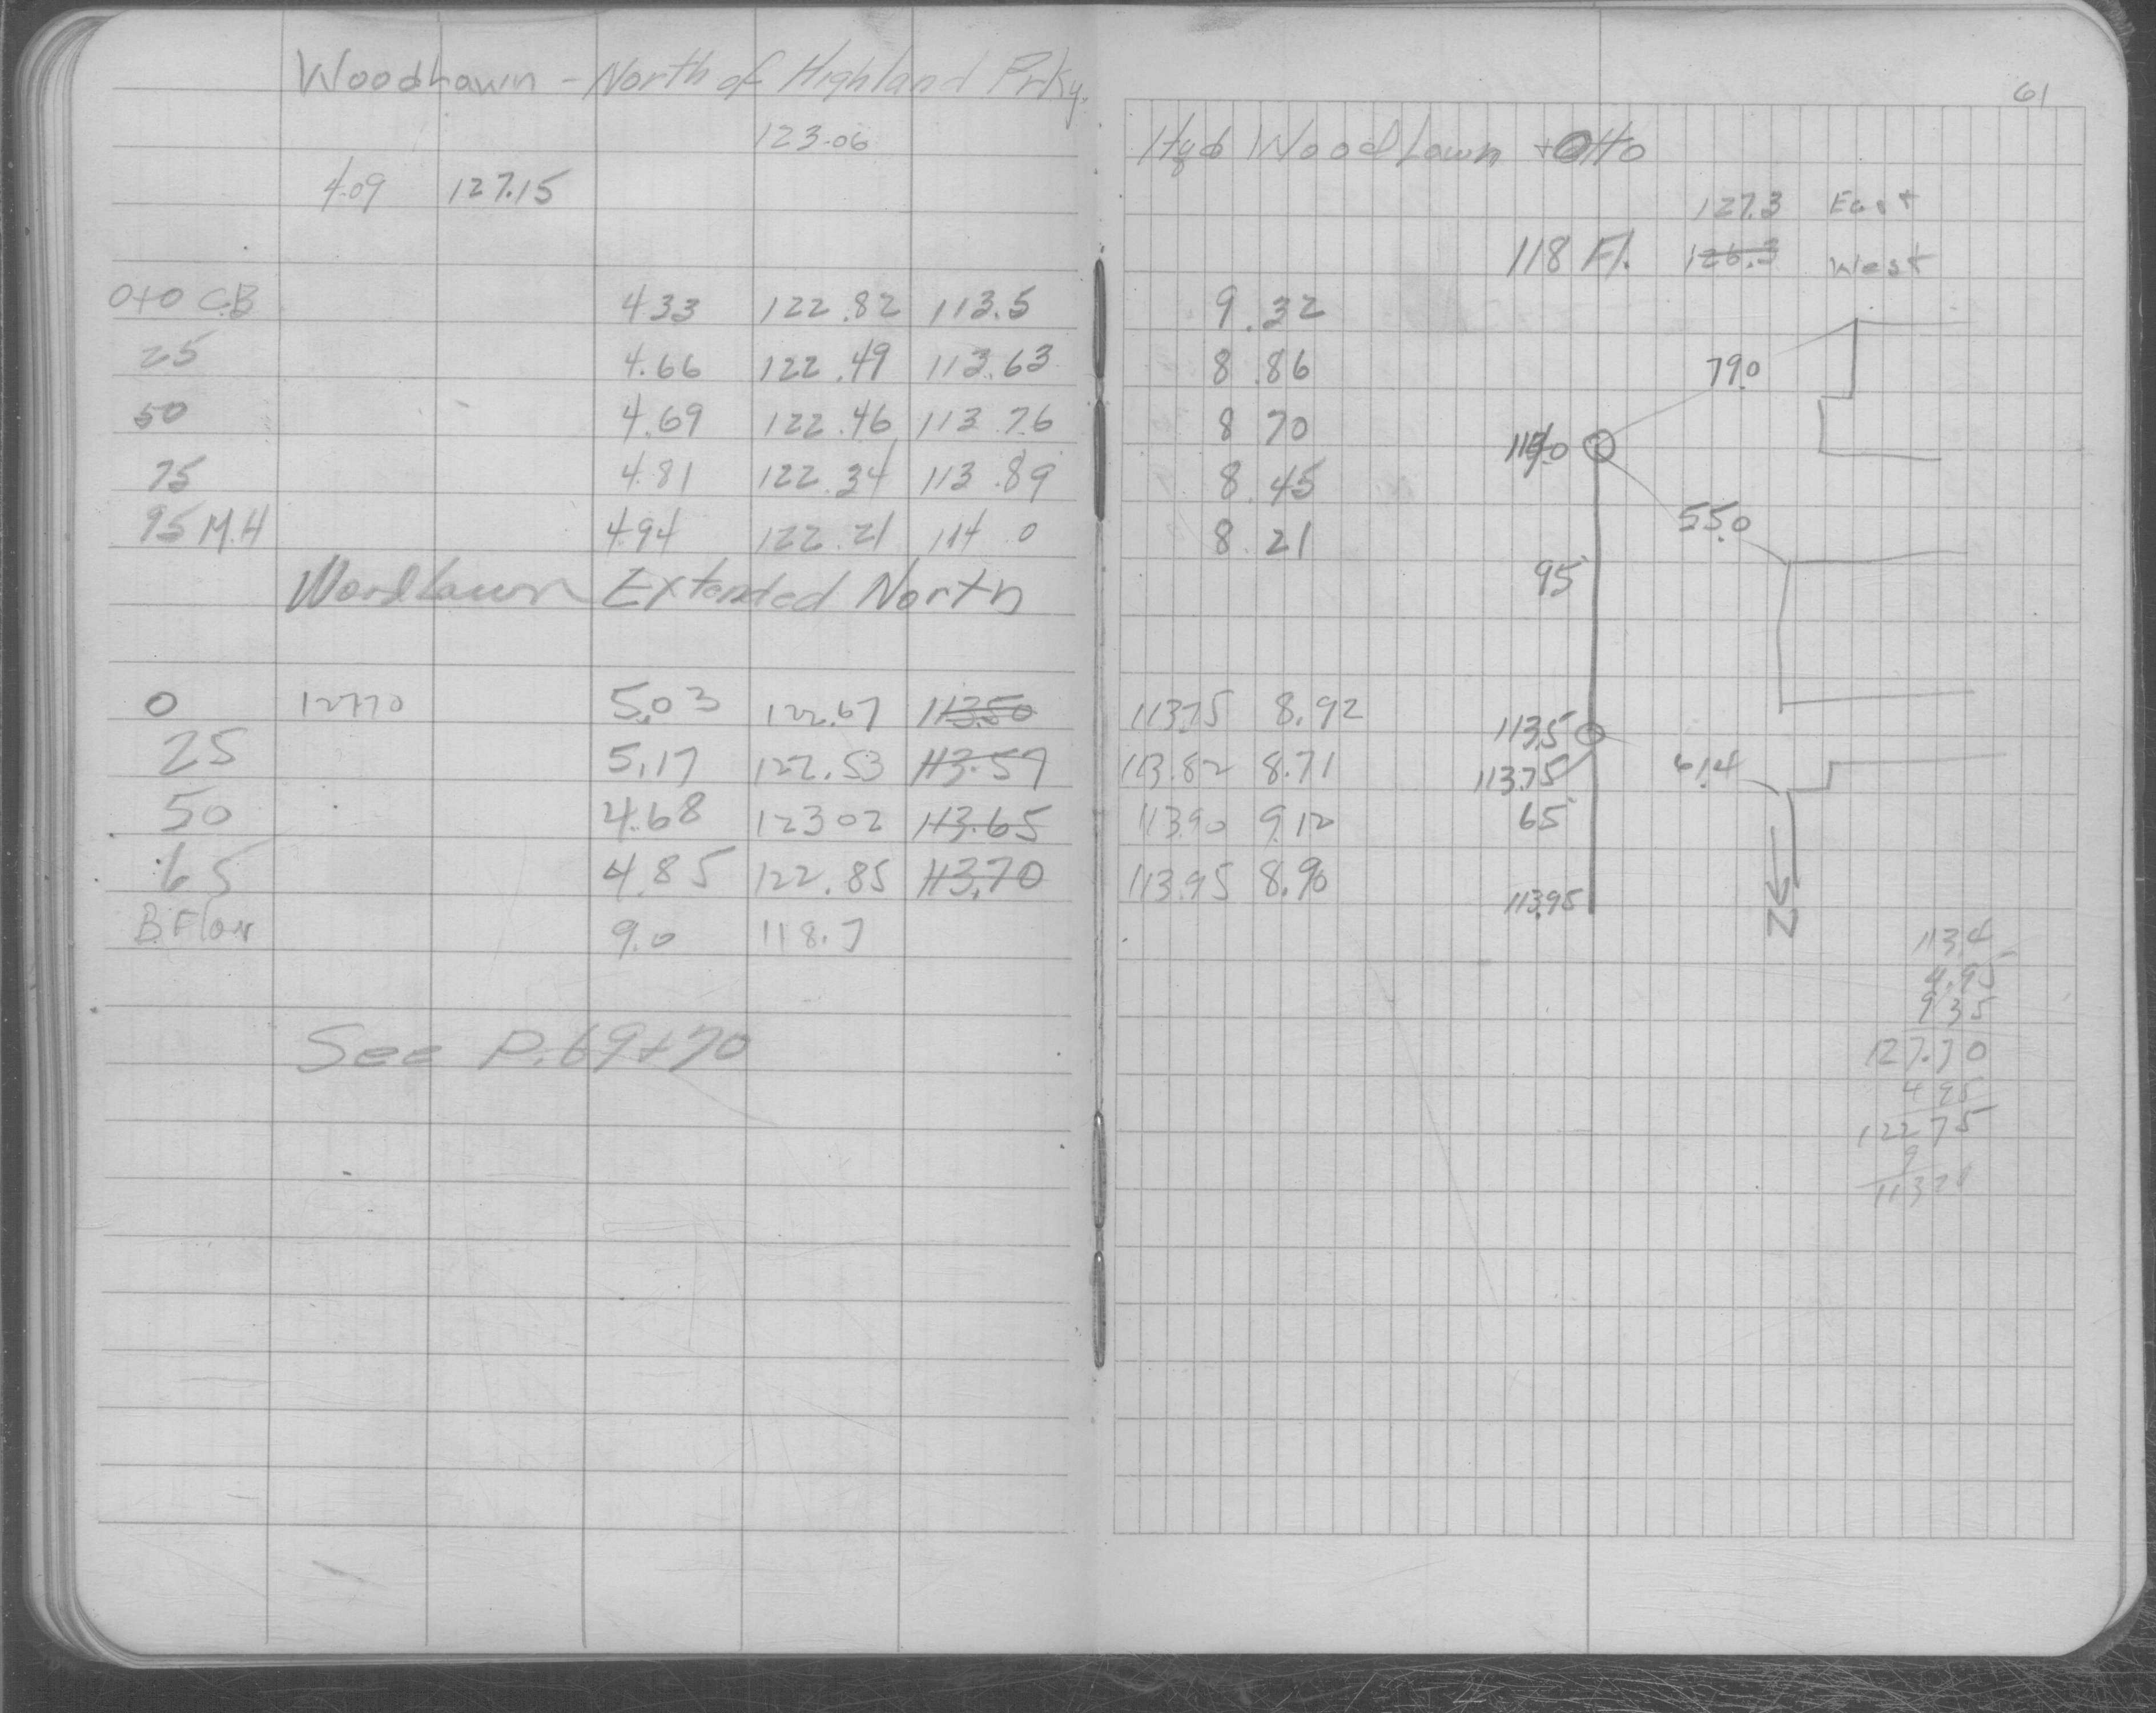 Woodlawn - North of Highland Prky.
123.06
4.09 127.15
0+0 C.B 4.33 122.82 113.5
25 4.66 122.49 113.63
50 4.69 122.46 113.76
75 4.81 122.34 113.89
95 M.H 4.94 122.21 114.0
Woodlawn Extended North
0 127.70 5.03 122.67 113.50
25 5.17 122.53 113.57
50 4.68 123.02 113.65
65 4.85 122.85 113.70
B. Floor 9.0 118.7
See P. 69+70
61
Hyd Woodlawn + Otto
127.3 East
118 Fl. 126.3 West
9.32
8.86
8 70
8.45
8.21
79.0
55.0
95
113.75 8.92
113.82 8.71
113.90 9.12
113.95 8.90
113.5
113.75
65
113.95
61.4
N
113 4
4.95
9 35
127.70
4 95
122 75
9